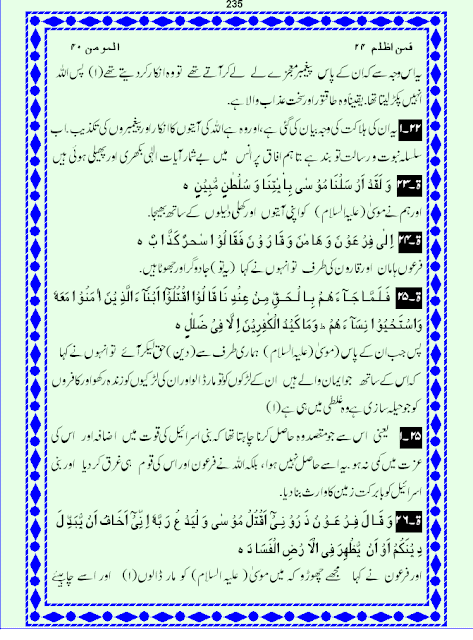 235
فمن اظلم ۲۴ المومن ۴۰
یہ اس وجہ سے کہ ان کے پاس پیغمبر معجزے لے لے کر آتے تھے تو وہ انکار کر دیتے تھے (۱) پس اللہ
انہیں پکڑ لیتا تھا۔ یقیناً وہ طاقتور اور سخت عذاب والا ہے۔
۲۲۔۱ یہ ان کی ہلاکت کی وجہ بیان کی گئی ہے، اور وہ ہے اللہ کی آیتوں کا انکار اور پیغمبروں کی تکذیب۔ اب
سلسلہ نبوت و رسالت تو بند ہے تاہم آفاق و انفس میں بے شمار آیات الٰہی بکھری اور پھیلی ہوئی ہیں
ۃ۔۲۳ وَلَقَدْ اَرْسَلْنَا مُوْسٰی بِاٰیٰتِنَا وَسُلْطٰنٍ مُّبِیْنٍ ہ
اور ہم نے موسیٰ (علیہ السلام) کو اپنی آیتوں اور کھلی دلیلوں کے ساتھ بھیجا۔
ۃ۔۲۴ اِلٰی فِرْعَوْنَ وَھَامٰنَ وَقَارُوْنَ فَقَالُوْا سٰحِرٌ کَذَّابٌ ہ
فرعون ہامان اور قارون کی طرف تو انہوں نے کہا (یہ تو) جادوگر اور جھوٹا ہیں۔
ۃ۔۲۵ فَلَمَّا جَآءَھُمْ بِالْحَقِّ مِنْ عِنْدِنَا قَالُوا اقْتُلُوْٓا اَبْنَآءَ الَّذِیْنَ اٰمَنُوْا مَعَہٗ
وَاسْتَحْیُوْا نِسَآءَھُمْ ط وَمَا کَیْدُ الْکٰفِرِیْنَ اِلَّا فِیْ ضَلٰلٍ ہ
پس جب ان کے پاس (موسیٰ (علیہ السلام) ہماری طرف سے (دین) حق لیکر آئے تو انہوں نے کہا
کہ اس کے ساتھ جو ایمان والے ہیں ان کے لڑکوں کو تو مار ڈالو اور ان کی لڑکیوں کو زندہ رکھو اور کافروں
کو جو حیلہ سازی ہے وہ غلطی میں ہی ہے (۱)
۲۵۔۱ یعنی اس سے جو مقصد وہ حاصل کرنا چاہتا تھا کہ بنی اسرائیل کی قوت میں اضافہ اور اس کی
عزت میں کمی نہ ہو۔ یہ اسے حاصل نہیں ہوا، بلکہ اللہ نے فرعون اور اس کی قوم ہی غرق کر دیا اور بنی
اسرائیل کو بابرکت زمین کا وارث بنا دیا۔
ۃ۔۲۶ وَقَالَ فِرْعَوْنُ ذَرُوْنِیْٓ اَقْتُلْ مُوْسٰی وَلْیَدْعُ رَبَّہٗ اِنِّیْٓ اَخَافُ اَنْ یُّبَدِّلَ
دِیْنَکُمْ اَوْ اَنْ یُّظْھِرَ فِی الْاَرْضِ الْفَسَادَ ہ
اور فرعون نے کہا مجھے چھوڑو کہ میں موسیٰ (علیہ السلام) کو مار ڈالوں (۱) اور اسے چاہیئے